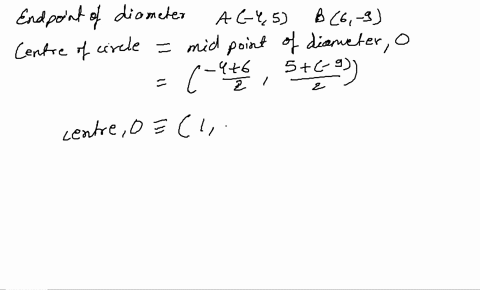 Endpoint of diameter A(-4,5) B(6,-9)
Centre of circle = mid point of diameter, O
= (-4+6/2, 5+(-9)/2)
centre, O ≡ (1,